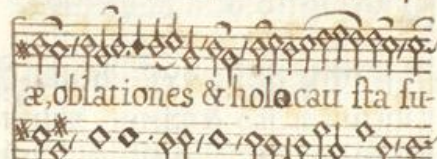 æ, oblationes & holocau sta su-